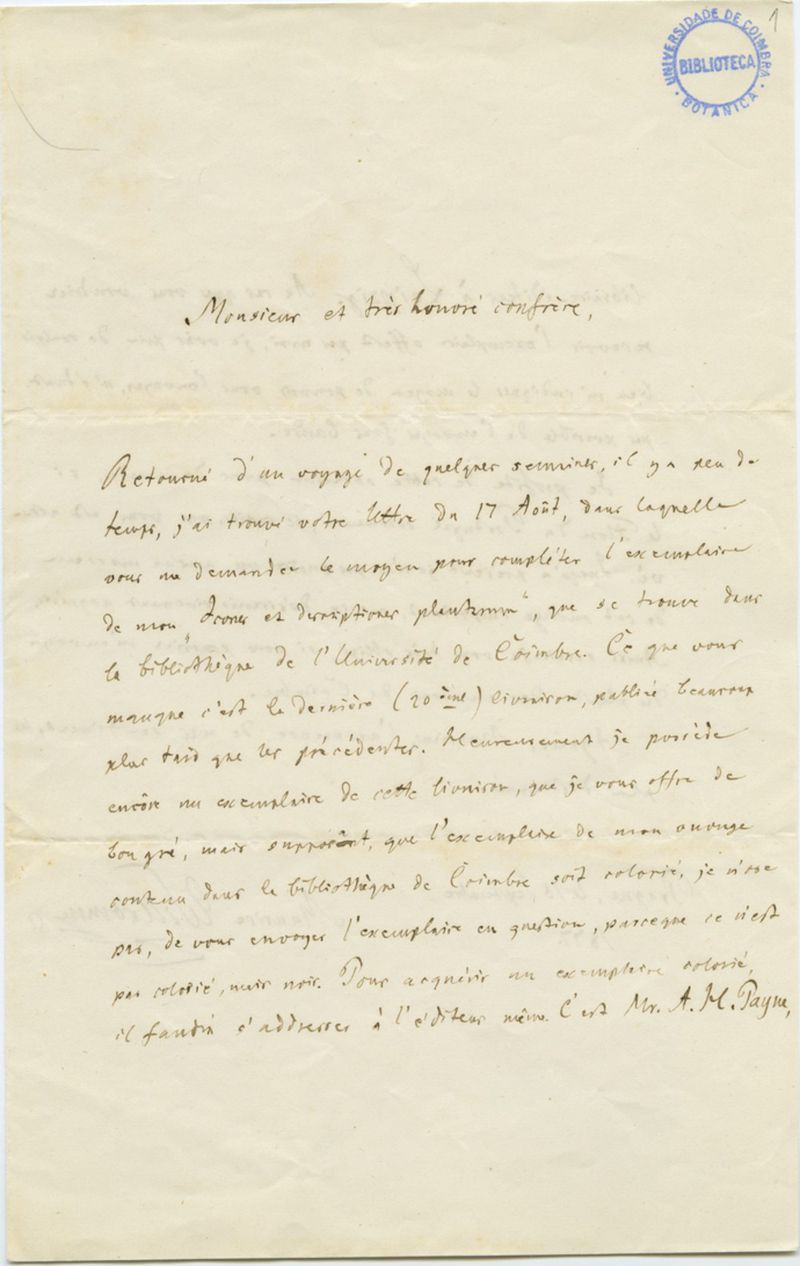 1
UNIVERSIDADE DE COIMBRA
BIBLIOTECA
BOTANICA
Monsieur et très honoré confrère,
Retourné d'un voyage de quelques semaines, il y a peu de
temps, j'ai trouvé votre lettre du 17 Août, dans laquelle
vous me demandez le moyen pour compléter l'exemplaire
de mon „Icones et descriptiones plantarum“, que se trouve dans
la bibliothèque de l'Université de Coimbre. Ce que vous
manque c'est la dernière (20ème) livraison, publié beaucoup
plus tard que les précédentes. Heureusement je possède
encôre un exemplaire de cette livraison, que je vous offre de
bon gré, mais supposânt, que l'exemplaire de mon ouvrage
contenu dans la bibliothèque de Coimbre soit colorié, je n'ose
pas, de vous envoyer l'exemplaire en question, parceque ce n'est
pas colorié, mais noir. Pour acquérir un exemplaire colorié,
il faudra s'addresser à l'éditeur même. C'est Mr. A. H. Payne,